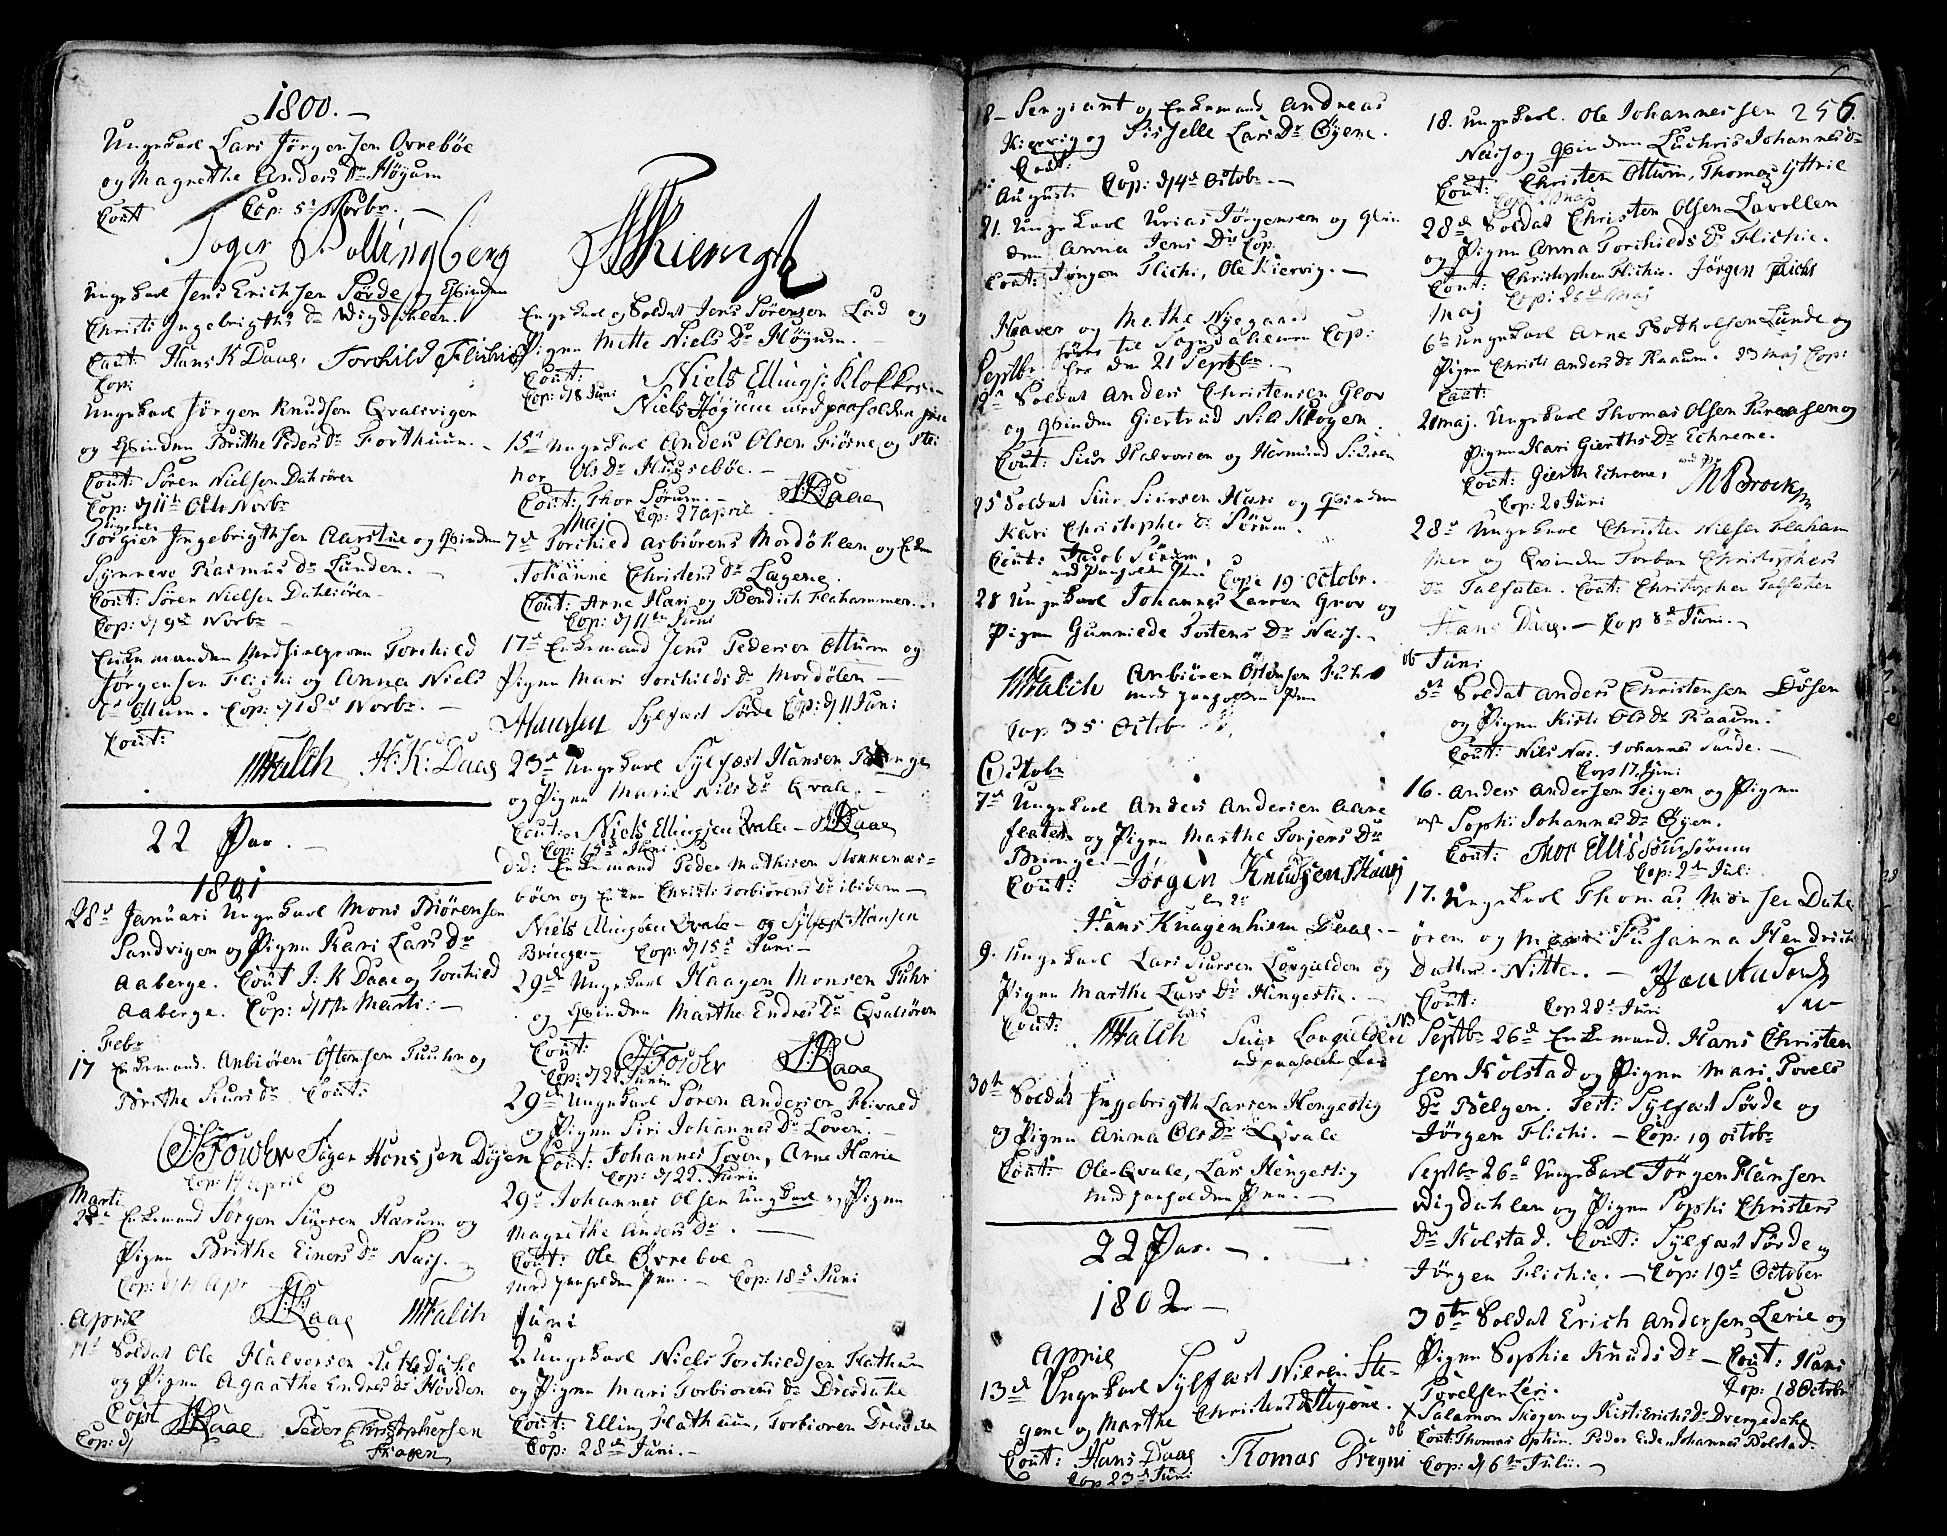 1800.
Ungekarl Lars Jørgensen Ovrebøe
og Magrethe Anders Dr Høyum
Cout Cop: 5t Norbr.
Toger Pollingberg
Ungekarl Jens Erichsen Sørde og Qvinden
Christi Ingebrigths dr Nigdahlen.
Caut: Hans K Daae, Torchild Flichie
Cop:
Ungekarl Jørgen Knudsen Qvalsvigen
og Qvinden Brithe Peders Dr Forthuun.
Cout: Søren Nielsen Dahlsøren
Cop: d 11te Norbr
Torgier Ingebrigthsen Aarstue og Qvinden
Synneve Rasmus dr Lunden.
Cout: Søren Nielsen Dahlsøren
Cop: d 9de Norbr
Enkemanden Torchild
Jørgensen Flichi og Anna Niels
dr Ottum. Cop: d 18d Norbr.
Cout:
MFalch H: K: Daae
22 Par.
1801
28d Januari Ungekarl Mons Biørensen
Sandvigen og Pigen Kari Lars dr
Aaberge. Cout J: K Daae og Torchild
Aaberge. Cop: Marti:
Febr
17 Enkemand. Anbiøren Østensen Fuuhr og
Brithe Siurs dr Cout:
Toger Hansen Døsen
Cop: April
Marti
Enkemand Jørgen Siursen Hærum og
Pigen Brithe Einers Dr Nass.
Cop: Apr
Daae MFalch
April
Soldat Ole Halversen
og Pigen Agaathe Endres dr Høvden
Cout Daae Peder Christophersen
Cop: d Skagen
Ungekarl og Soldat Jens Sørensen Lad og
Pigen Mette Niels Dr Høyum.
Cout: Niels Ellings: Klokker
Cop: d 8 Juni Niels Høyum med paaholden pen
15d Ungekarl Anders Olsen Fiørne og
Ols Dr Huusebøe.
Cout: Thor Sørum. Daae
Maj Cop: 27 april
7d Torchild Asbiørens Mordøhlen og Enken
Johanne Christens Dr Lægene.
Cout: Arne Hari og Bendich Flahammer.
Cop: d 11te Juni
17d Enkemand Jens Pedersen Ottum og
Pigen Mari Torchilds dr Mordølen
Hansen Sylfæst Sørde Cop: d 11 Juni
23d Ungekarl Sylfæst Hansen
og Pigen Marie Nils dr Qvale.
Cout: Niels Ellingsen Qvale Daae
Cop: 15d Juni.
did: Enkemand Peder Mathisen
bøen og Enken Christi Torbiørens dr ibidem
Niels Ellingsen Qvale og Sylfest Hansen
Bringe Cop: d 15d Juni
29d Ungekarl Haagen Monsen Fuhr
og Qvinden Marthe Endres Dr Qvalsøren
Cout: Daae
Cop: d 22 Juni
29d Ungekarl Søren Andersen
og Pigen Siri Johannes Dr Loven.
Cout: Johannes Loven, Arne Harie
Cop: d 22. Juni
29d Johannes Olsen Ungkarl og Pigen
Magrethe Anders Dr.
Cout: Ole Øvreboe
med paaholden Pen. Cop: 18d Juni
Juni
2. Ungekarl Niels Torchildsen Flathun
og Pigen Mari Torbiørens dr Dresdahl
Cout: Elling Flathun, Torbioren Dresdahl
Cop: 28d Juni.
18 Sergiant og Enkemand Andreas
Kiervig og Sisselle Lars Dr Øyene.
Cout:
Augusti Cop: d 4d Octobr.
21. Ungekarl Urias Jørgensen og Qvin
den Anna Jens Dr Cop:
Cout: Jørgen Flichi, Ole Kiervig.
Haaver og Methe Nyegaard Cop:
til Sogndahlsens
Septbr den 21 Septbr.
Soldat Anders Christensen Glov
og Qvinden Giertrud Nils Krogen.
Cout: Siur Halvorsen og Hermund Siursen
25 Soldat Siur Siursen Hari og Qvinden
Kari Christopher dr Sørum.
Cout: Jacob Sørum,
med paaholden Pen Cop: 19 Octobr.
28 Ungekarl Johannes Larsen Grov og
Pigen Gunnilde Tostens Dr Nass.
MFalch Anbiøren Østensen Fuhr
med paaholden Pen
Cop Octobr
Octobr
7d Ungekarl Anders Andersen Aare
flaten og Pigen Marthe Torjers Dr
Bringe.
Cout: Jørgen Knudsen
Hans Knagenhielm Daae.
9. Ungekarl Lars Siursen Lovgulden og
Pigen Marthe Lars Dr Hengestie.
Cout: MFalch Siur Lovgulden
med paaholden Pen
30te Soldat Ingebrigth Larsen Hengestig
og Pigen Anna Ols Dr Qvale
Cout: Ole Qvale, Lars Hengestig
med paaholden Pen.
22 Par.
1802
April
13d Ungekarl Sylfæst Nielsen Ste-
gene og Marthe Christens Dr Stegene.
Cout: Hans Daae Thomas Bregni
Cop 23d Juni
256
18. Ungekarl. Ole Johannessen
Nass og Qvinden Luchris Johannesdr
Cout: Christen Ottum, Thomas Yttrie
28d Soldat Christen Olsen Lavollen
og Pigen Anna Torchilds Dr Flichie.
Cout: Christopher Flichie. Jørgen Flichi
Maj Cop: Maj
6te Ungekarl Arne Botholfsen Lunde og
Pigen Christi Anders Dr Raaum. 23 maj Cop:
Cout:
21 maj. Ungekarl Thomas Olsen og
Pigen Kari Gierths Dr Echrene.
Cout: Gierth Echrene, MBrock
Cop: 20 Juni
28d Ungekarl Christen Nielsen Flaham
mer og Qvinden Torbor Christophers
Dr Talsæten. Cout: Christopher Talsæten
Hans Daae. Cop 8d Juni.
Juni
5te Soldat Anders Christensen Døsen
og Pigen Kisti Ols Dr Raaum.
Cout: Nils Nas. Johannes Sande.
Cop 17 Juni
16. Anders Andersen Teigen og Pigen
Sophi Johannes Dr Øyen.
Cout: Thor Ellis Sørum
Cop: 2de Juli
17. Ungekarl Thomas Monsen Dahl
øren og Susanna Hendrich
Datter Nitter.
Cout: Cop 28d Juni
Septbr 26d Enkemand. Hans Christen
sen Kolstad og Pigen Mari Povels
Dr Bolgen. Test: Sylfæst Sørde og
Jørgen Flichi. Cop: 19 octobr
Septbr 26d Ungekarl Jørgen Hansen
Nigdahlen og Pigen Sophi Christens
Dr Kolstad. Cout: Sylfæst Sørde og
Jørgen Flichie. Cop: 19d October
30te Soldat Erich Andersen Lerie og
Pigen Sophie Knuds Dr Cout: Hans
Povelsen Leri. Cop: 18 Octobr
X Salamon Skogen og Kisti Erichs Dr Dregedahl
Cout: Thomas Opheim. Peder Eide Johannes Bolstad.
Cop: d 6te Juli.